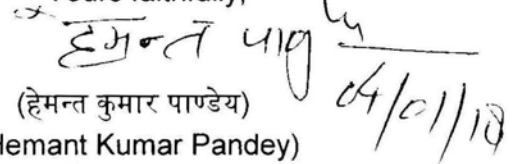 Yours faithfully,
हेमन्त
04/01/18
(हेमन्त कुमार पाण्डेय)
Hemant Kumar Pandey)